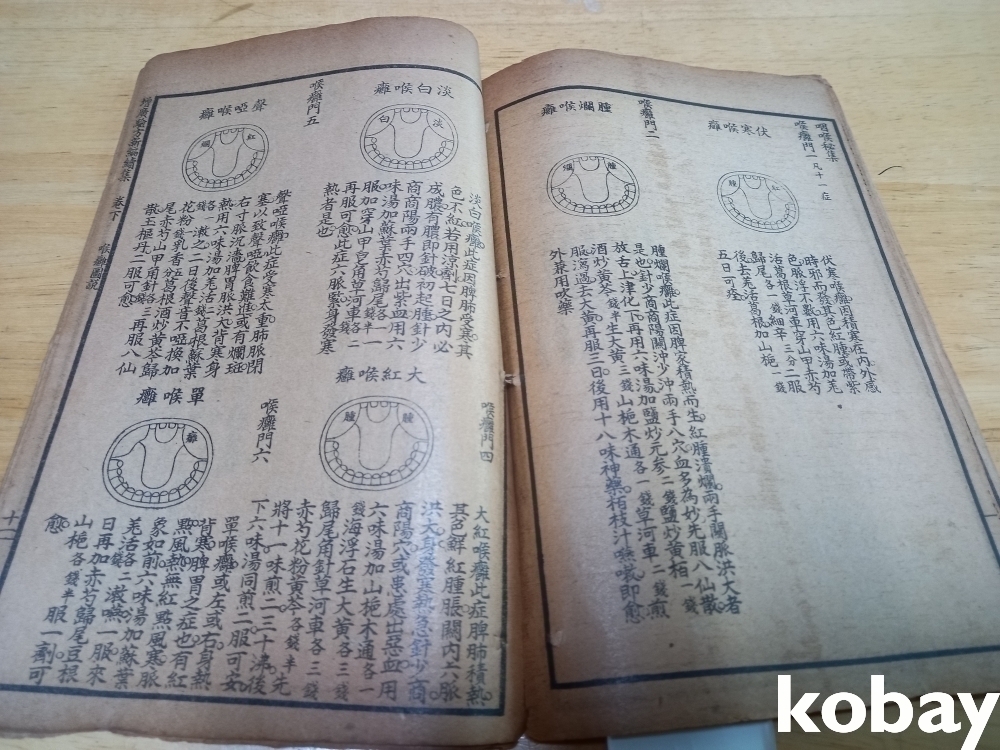 咽喉秘集
喉癰門一凡十一症
伏寒喉癰
紅
腫
伏寒喉癰因積寒在內外感
時邪而發其色紅腫或帶紫
色脈浮不數用六味湯加羌
活葛根草河車穿山甲赤芍
歸尾各一錢細辛三分二服
後去羌活葛根加山梔一錢
五日可痊
喉癰門二
腫爛喉癰
腫
爛
腫爛喉癰此症因脾家積熱而生紅腫潰爛兩手關脈洪大者
是也針少商商陽關沖少沖兩手八穴血多為妙先服八仙散
放舌上津化下再用六味湯加鹽炒元參二錢鹽炒黃柏一錢
酒炒黃芩一錢半生大黃三錢山梔木通各一錢草河車二錢煎
服瀉過去大黃再服三日後用十八味神藥柘枝汁嗽喉即愈
外兼用吹藥
喉癰門四
淡白喉癰
淡
白
淡白喉癰此症因脾肺受寒其
色不紅若用涼劑七日之內必
成膿有膿即針破初起腫針少
商商陽兩手四穴出紫血用六
味湯加蘇葉赤芍歸尾各一錢
服加穿山甲皂角草河車各二
再服可愈此症六脈緊身發寒
熱者是也
大紅喉癰
腫
腫
大紅喉癰此症脾肺積熱
其色鮮紅腫脹關內六脈
洪大身發寒熱急針少商
商陽穴或患處出惡血用
六味湯加山梔木通各一
錢海浮石生大黃各三錢
歸尾角針草河車各三錢
赤芍花粉黃芩各錢半先
將十一味煎二三十沸後
下六味湯同煎二服可安
喉癰門五
聲啞喉癰
紅
爛
聲啞喉癰此症受寒太重肺脈閉
塞以致聲啞飲食難進或有爛斑
右寸脈沉濇脾胃脈洪大背寒身
熱用六味湯加羌活錢葛根蘇葉
各一錢漱之二日後聲音不啞換加
花粉錢乳香五分葛根酒炒黃芩歸
尾赤芍山甲角針各三錢再服八仙
散玉樞丹二服可愈
喉癰門六
單喉癰
癰
單喉癰或左或右身熱
背寒脾胃之症也有紅
點風熱無紅點風寒脈
象如前六味湯加蘇葉
羌活各二錢漱嚥一服來
日再加赤芍歸尾豆根
山梔各錢半服一劑可
愈
增廣驗方新編續集
卷下
喉癰圖說
kobay